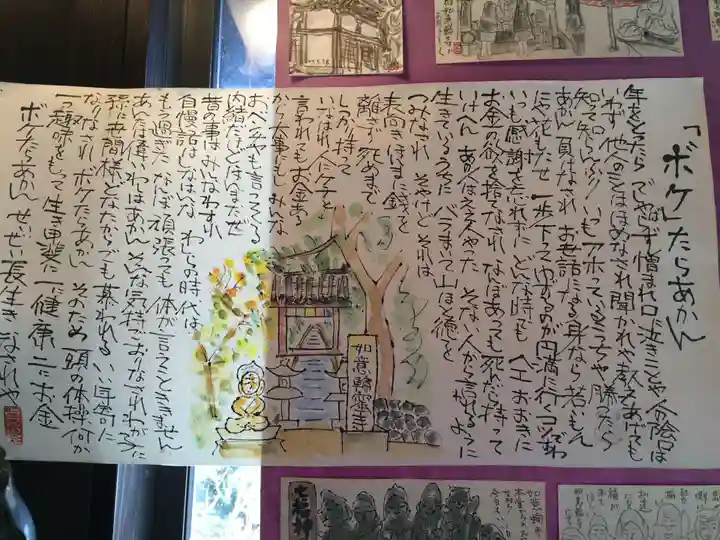 「ボケ」たらあかん
年をとったら でしゃばらず 憎まれ口に泣きごとや 人の陰口は
いわず 他人のことはほめなされ 聞かれりゃ教えてあげても
知ってても知らんふり いつもアホっているこっちゃ 勝ったら
あかん 負けなはれ お世話になる身なら 若いもん
にゃ花もたせ 一歩下ってゆずるのが円満に行くコツですわ
いつも感謝を忘れずに どんな時でも へえおおきに
お金の欲を捨てなされ なんぼあっても死んだら持って
いけへん あの人はええ人やった そない人から言われるように
生きているうちに バラまいて山ほど徳を
つみなはれ そやけどそれは
表向き ほんまは銭を
離さず 死ぬまで
しっかり持って
いなはれ 人にケチと
言われても お金ある
から大事にし みんな
おベンチャラも言ってくる
内緒だけどほんまだっせ
昔の事はみんなわすれ
自慢話はしなはんな わしらの時代は
もう過ぎた なんぼ頑張っても 体が言うことききません
あんたは偉い わしはあかん そんな気持でおりなされ わが子に
孫に世間様 どなたからでも 慕われる いい年寄に
なりなはれ ボケたらあかん そのため 頭の体操何か
一つ趣味をもって生き甲斐に 一に健康 二にお金
ボケたらあかん せいぜい長生きしなはれや
如意輪霊寺
七福神